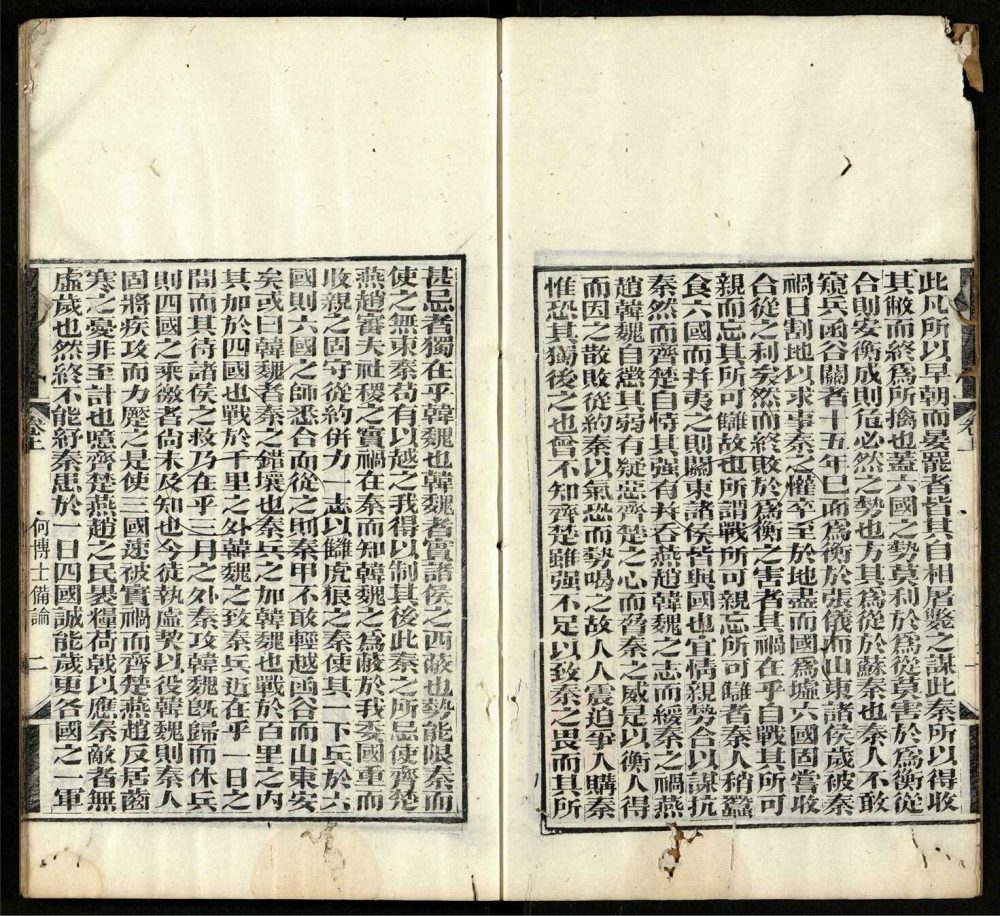 此凡所以早朝而晏罷者皆其自相屠斃之謀此秦所以得收
其敝而終爲所擒也蓋六國之勢莫利於爲從莫害於爲衡從
合則安衡成則危必然之勢也方其爲從於蘇秦也秦人不敢
窺兵函谷關者十五年已而爲衡於張儀而山東諸侯歲被秦
禍日割地以求事秦之懽卒至於地盡而國爲墟六國固嘗收
合從之利矣然而終敗於爲衡之害者其禍在乎自戰其所可
親而忘其所可讎故也所謂戰所可親忘所可讎者秦人稍蠶
食六國而幷夷之則關東諸侯皆與國也宜情親勢合以謀抗
秦然而齊楚自恃其强有幷吞燕趙韓魏之志而緩秦之禍燕
趙韓魏自懲其弱有疑惡齊楚之心而脅秦之威是以衡人得
而因之散敗從約秦以氣恐而勢喝之故人人震迫爭入購秦
惟恐其獨後之也曾不知齊楚雖强不足以致秦之畏而其所
甚忌者獨在乎韓魏也韓魏者實諸侯之西蔽也勢能限秦而
使之無東秦苟有以越之我得以制其後此秦之所忌使齊楚
燕趙審夫社稷之實禍在秦而知韓魏之爲蔽於我委國重而
收親之固守從約倂力一志以讎虎狼之秦使其一下兵於六
國則六國之師悉合而從之則秦甲不敢輕越函谷而山東安
矣或曰韓魏者秦之錯壤也秦兵之加韓魏也戰於百里之內
其加於四國也戰於千里之外韓魏之致秦兵近在乎一日之
間而其待諸侯之救乃在乎三月之外秦攻韓魏旣歸而休兵
則四國之乘徼者尙未及知也今徒執虛契以役韓魏則秦人
固將疾攻而力壓之是使二國速被實禍而齊楚燕趙反居齒
寒之憂非至計也噫齊楚燕趙之民裹糧荷戟以應秦敵者無
虛歲也然終不能紓秦患於一日四國誠能歲更各國之一軍
卷上
何博士備論
二